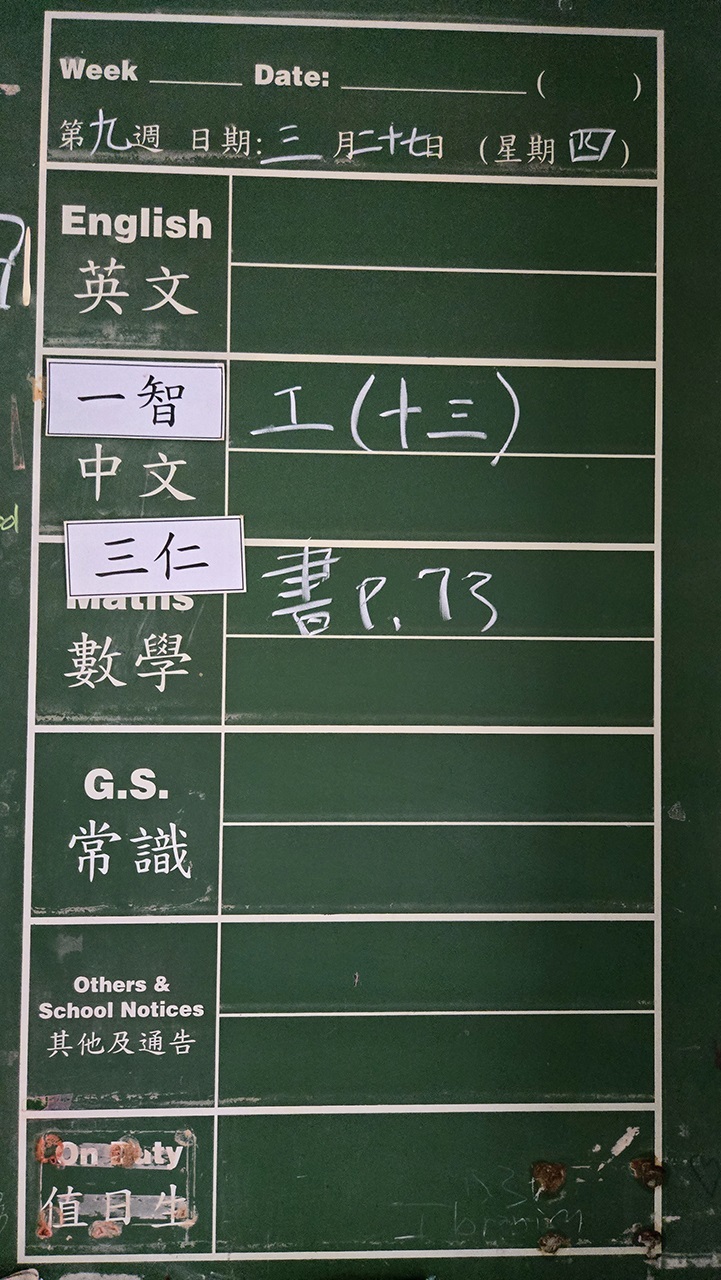 Week ______ Date: ____________ ( )
第九週 日期:三月二十七日 (星期四)
English
英文
一智
工(十三)
中文
三仁
Maths
書P.73
數學
G.S.
常識
Others &
School Notices
其他及通告
On Duty
值日生